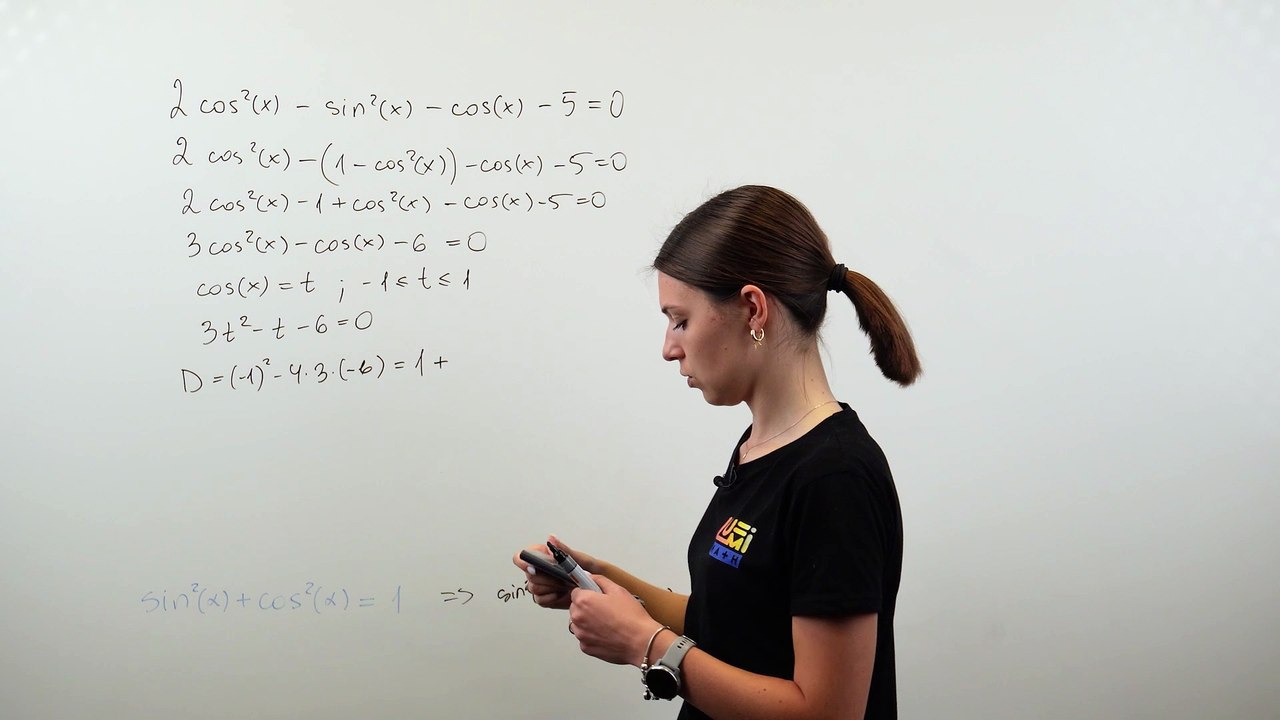 2 cos²(x) − sin²(x) − cos(x) − 5 = 0
2 cos²(x) − (1 − cos²(x)) − cos(x) − 5 = 0
2 cos²(x) − 1 + cos²(x) − cos(x) − 5 = 0
3 cos²(x) − cos(x) − 6 = 0
cos(x) = t ; −1 ≤ t ≤ 1
3t² − t − 6 = 0
D = (−1)² − 4·3·(−6) = 1 +
LUMI
MATH
sin²(x) + cos²(x) = 1 => sin²